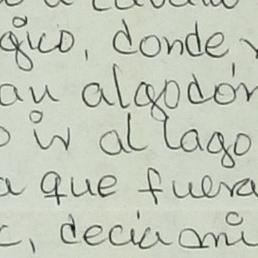 gico, donde
au algodón
o ir al lago
a que fuera
c, decia mi